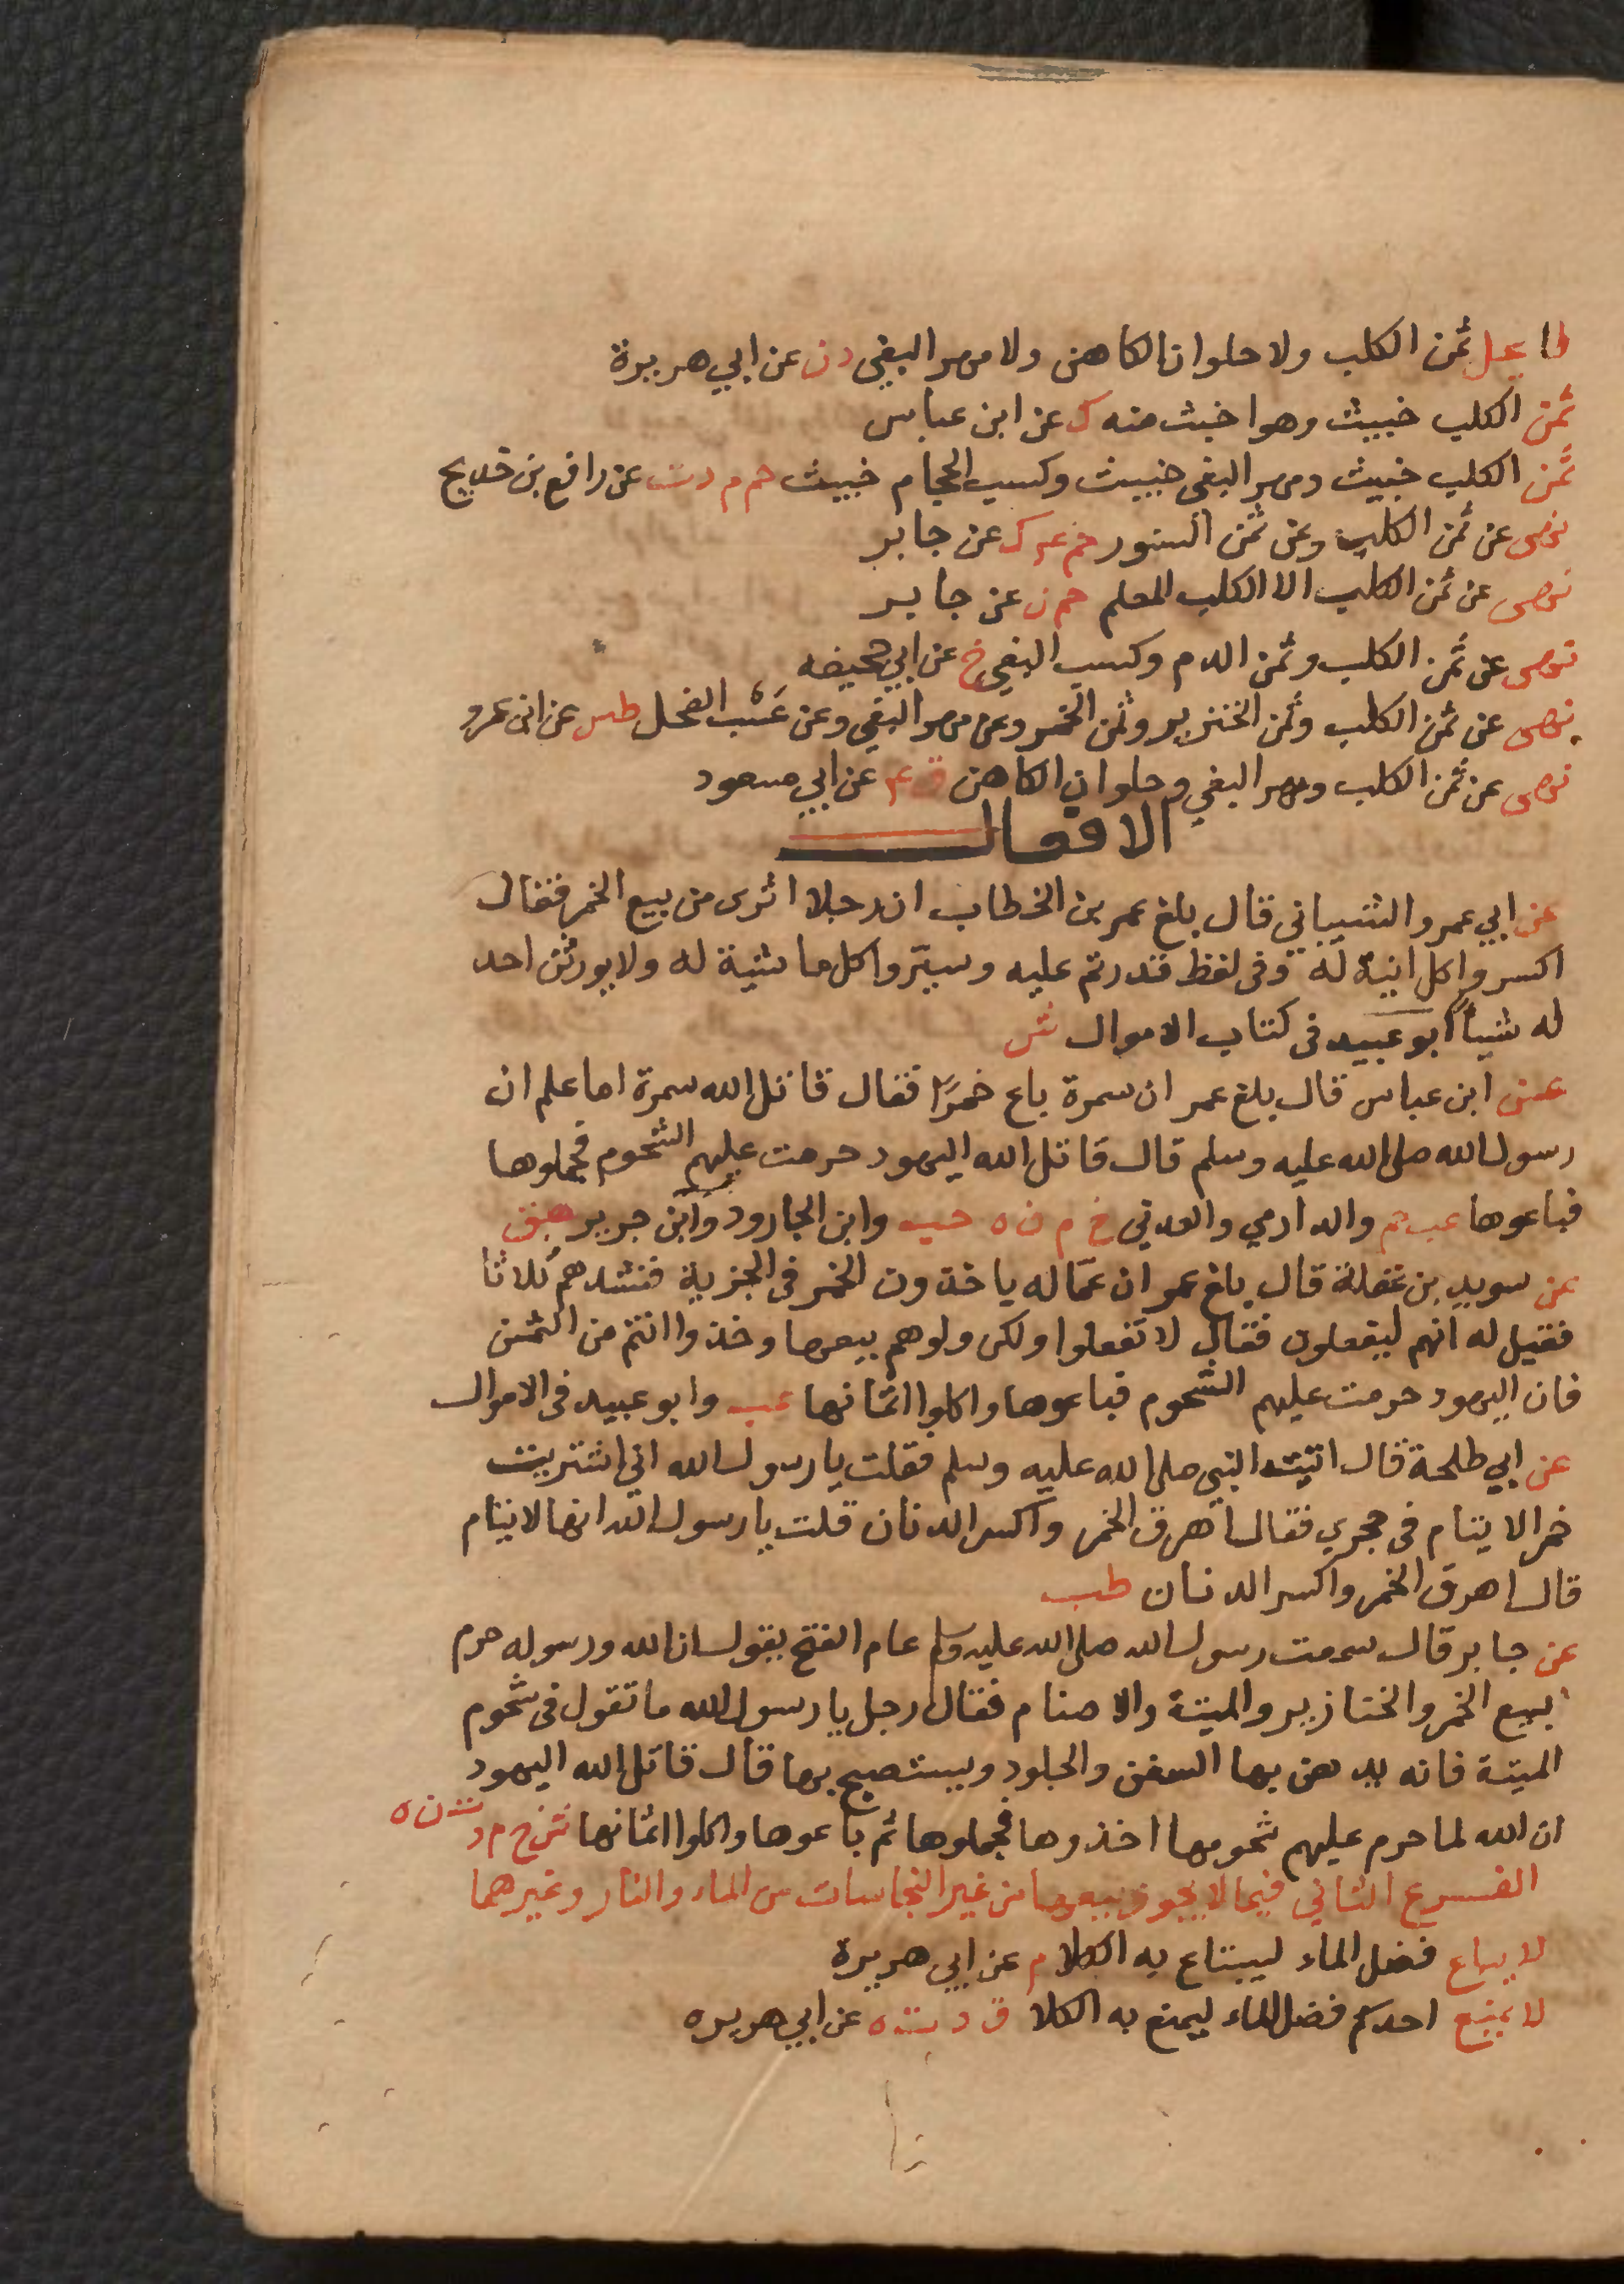 لا يحل ثمن الكلب ولا حلوان الكاهن ولا مهر البغي د ن عن ابي هريرة
ثمن الكلب خبيث وهو اخبث منه ك عن ابن عباس
ثمن الكلب خبيث ومهر البغي خبيث وكسب الحجام خبيث حم م د ت عن رافع بن خديج
نهى عن ثمن الكلب وعن ثمن السنور حم ع ك عن جابر
نهى عن ثمن الكلب الا الكلب المعلم حم ن عن جابر
نهى عن ثمن الكلب وثمن الدم وكسب البغي خ عن ابي جحيفه
نهى عن ثمن الكلب وثمن الخنزير وثمن الخمر وعن مهر البغي وعن عَسْب الفحل طس عن ابن عمرو
نهى عن ثمن الكلب ومهر البغي وحلوان الكاهن ق ع عن ابي مسعود
الافعال
عن ابي عمرو الشيباني قال بلغ عمر بن الخطاب ان رجلا اثرى من بيع الخمر فقال
اكسروا كل انية له وفى لفظ قدرتم عليه وسيّروا كل ماشية له ولا يورثن احد
له شيأ ابو عبيد فى كتاب الاموال ش
عن ابن عباس قال بلغ عمر ان سمرة باع خمرًا فقال قاتل الله سمرة اما علم ان
رسول الله صلى الله عليه وسلم قال قاتل الله اليهود حرمت عليهم الشحوم فجملوها
فباعوها عب حم والدارمي والعدني خ م ن ه حب وابن الجارود وابن جرير هق
عن سويد بن غفلة قال بلغ عمر ان عمّاله ياخذون الخمر فى الجزية فنشدهم ثلاثا
فقيل له انهم ليفعلون فقال لا تفعلوا ولكن ولوهم بيعها وخذوا انتم من الثمن
فان اليهود حرمت عليهم الشحوم فباعوها واكلوا اثمانها عب وابو عبيد فى الاموال
عن ابي طلحة قال اتيت النبي صلى الله عليه وسلم فقلت يا رسول الله اني اشتريت
خمرا لايتام فى حجري فقال اهرق الخمر واكسر الدنان قلت يا رسول الله انها لايتام
قال اهرق الخمر واكسر الدنان طب
عن جابر قال سمعت رسول الله صلى الله عليه وسلم عام الفتح يقول ان الله ورسوله حرم
بيع الخمر والخنازير والميتة والاصنام فقال رجل يا رسول الله ما تقول فى شحوم
الميتة فانه يدهن بها السفن والجلود ويستصبح بها قال قاتل الله اليهود
ان الله لما حرم عليهم شحومها اخذوها فجملوها ثم باعوها واكلوا اثمانها ش خ م د ت ن ه
الفرع الثاني فيما لا يجوز بيعها من غير النجاسات من الماء والنار وغيرهما
لا يباع فضل الماء ليبتاع به الكلا م عن ابي هريرة
لا يمنع احدكم فضل الماء ليمنع به الكلا ق د ت ه عن ابي هريره